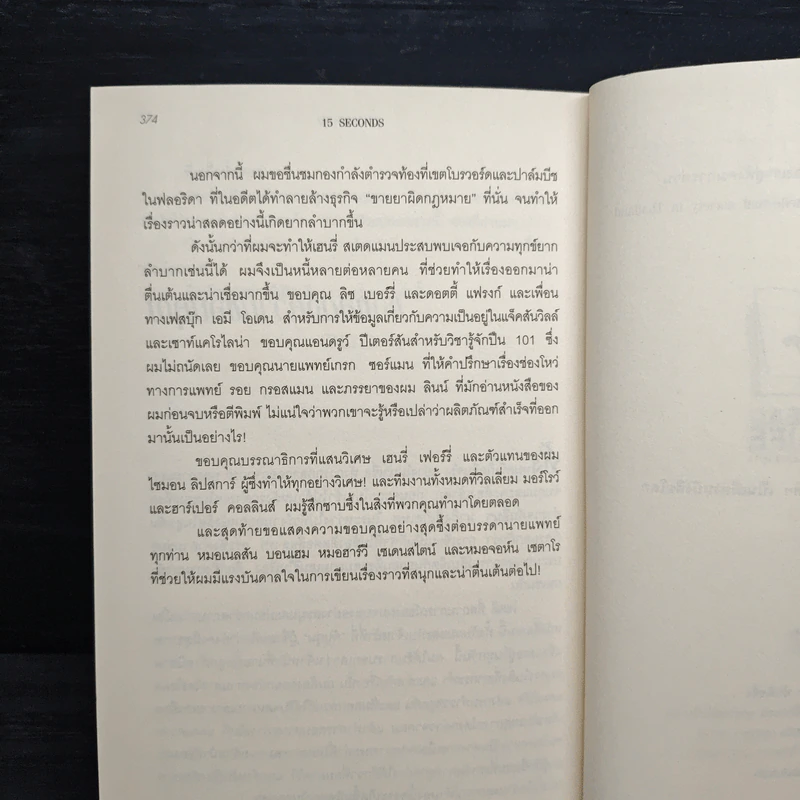 374
15 SECONDS
นอกจากนี้ ผมขอชื่นชมกองกำลังตำรวจท้องที่เขตโบรวอร์ดและปาล์มบีช
ในฟลอริดา ที่ในอดีตได้ทำลายล้างธุรกิจ “ขายยาผิดกฎหมาย” ที่นั่น จนทำให้
เรื่องราวน่าสลดอย่างนี้เกิดยากลำบากขึ้น
ดังนั้นกว่าที่ผมจะทำให้เฮนรี่ สเตดแมนประสบพบเจอกับความทุกข์ยาก
ลำบากเช่นนี้ได้ ผมจึงเป็นหนี้หลายต่อหลายคน ที่ช่วยทำให้เรื่องออกมาน่า
ตื่นเต้นและน่าเชื่อมากขึ้น ขอบคุณ ลิซ เบอร์รี่ และดอตตี้ แฟรงก์ และเพื่อน
ทางเฟสบุ๊ก เอมี โอเดน สำหรับการให้ข้อมูลเกี่ยวกับความเป็นอยู่ในแจ็คสันวิลล์
และเซาท์แคโรไลน่า ขอบคุณแอนดรูว์ ปีเตอร์สันสำหรับวิชารู้จักปืน 101 ซึ่ง
ผมไม่ถนัดเลย ขอบคุณนายแพทย์เกรก ซอร์แมน ที่ให้คำปรึกษาเรื่องช่องโหว่
ทางการแพทย์ รอย กรอสแมน และภรรยาของผม ลินน์ ที่มักอ่านหนังสือของ
ผมก่อนจบหรือตีพิมพ์ ไม่แน่ใจว่าพวกเขาจะรู้หรือเปล่าว่าผลิตภัณฑ์สำเร็จที่ออก
มานั้นเป็นอย่างไร!
ขอบคุณบรรณาธิการที่แสนวิเศษ เฮนรี่ เฟอร์รี่ และตัวแทนของผม
ไซมอน ลิปสการ์ ผู้ซึ่งทำให้ทุกอย่างวิเศษ! และทีมงานทั้งหมดที่วิลเลี่ยม มอร์โรว์
และฮาร์เปอร์ คอลลินส์ ผมรู้สึกซาบซึ้งในสิ่งที่พวกคุณทำมาโดยตลอด
และสุดท้ายขอแสดงความขอบคุณอย่างสุดซึ้งต่อบรรดานายแพทย์
ทุกท่าน หมอเนลสัน บอนเฮม หมอฮาร์วี เซเดนสไตน์ และหมอจอห์น เซตาโร
ที่ช่วยให้ผมมีแรงบันดาลใจในการเขียนเรื่องราวที่สนุกและน่าตื่นเต้นต่อไป!